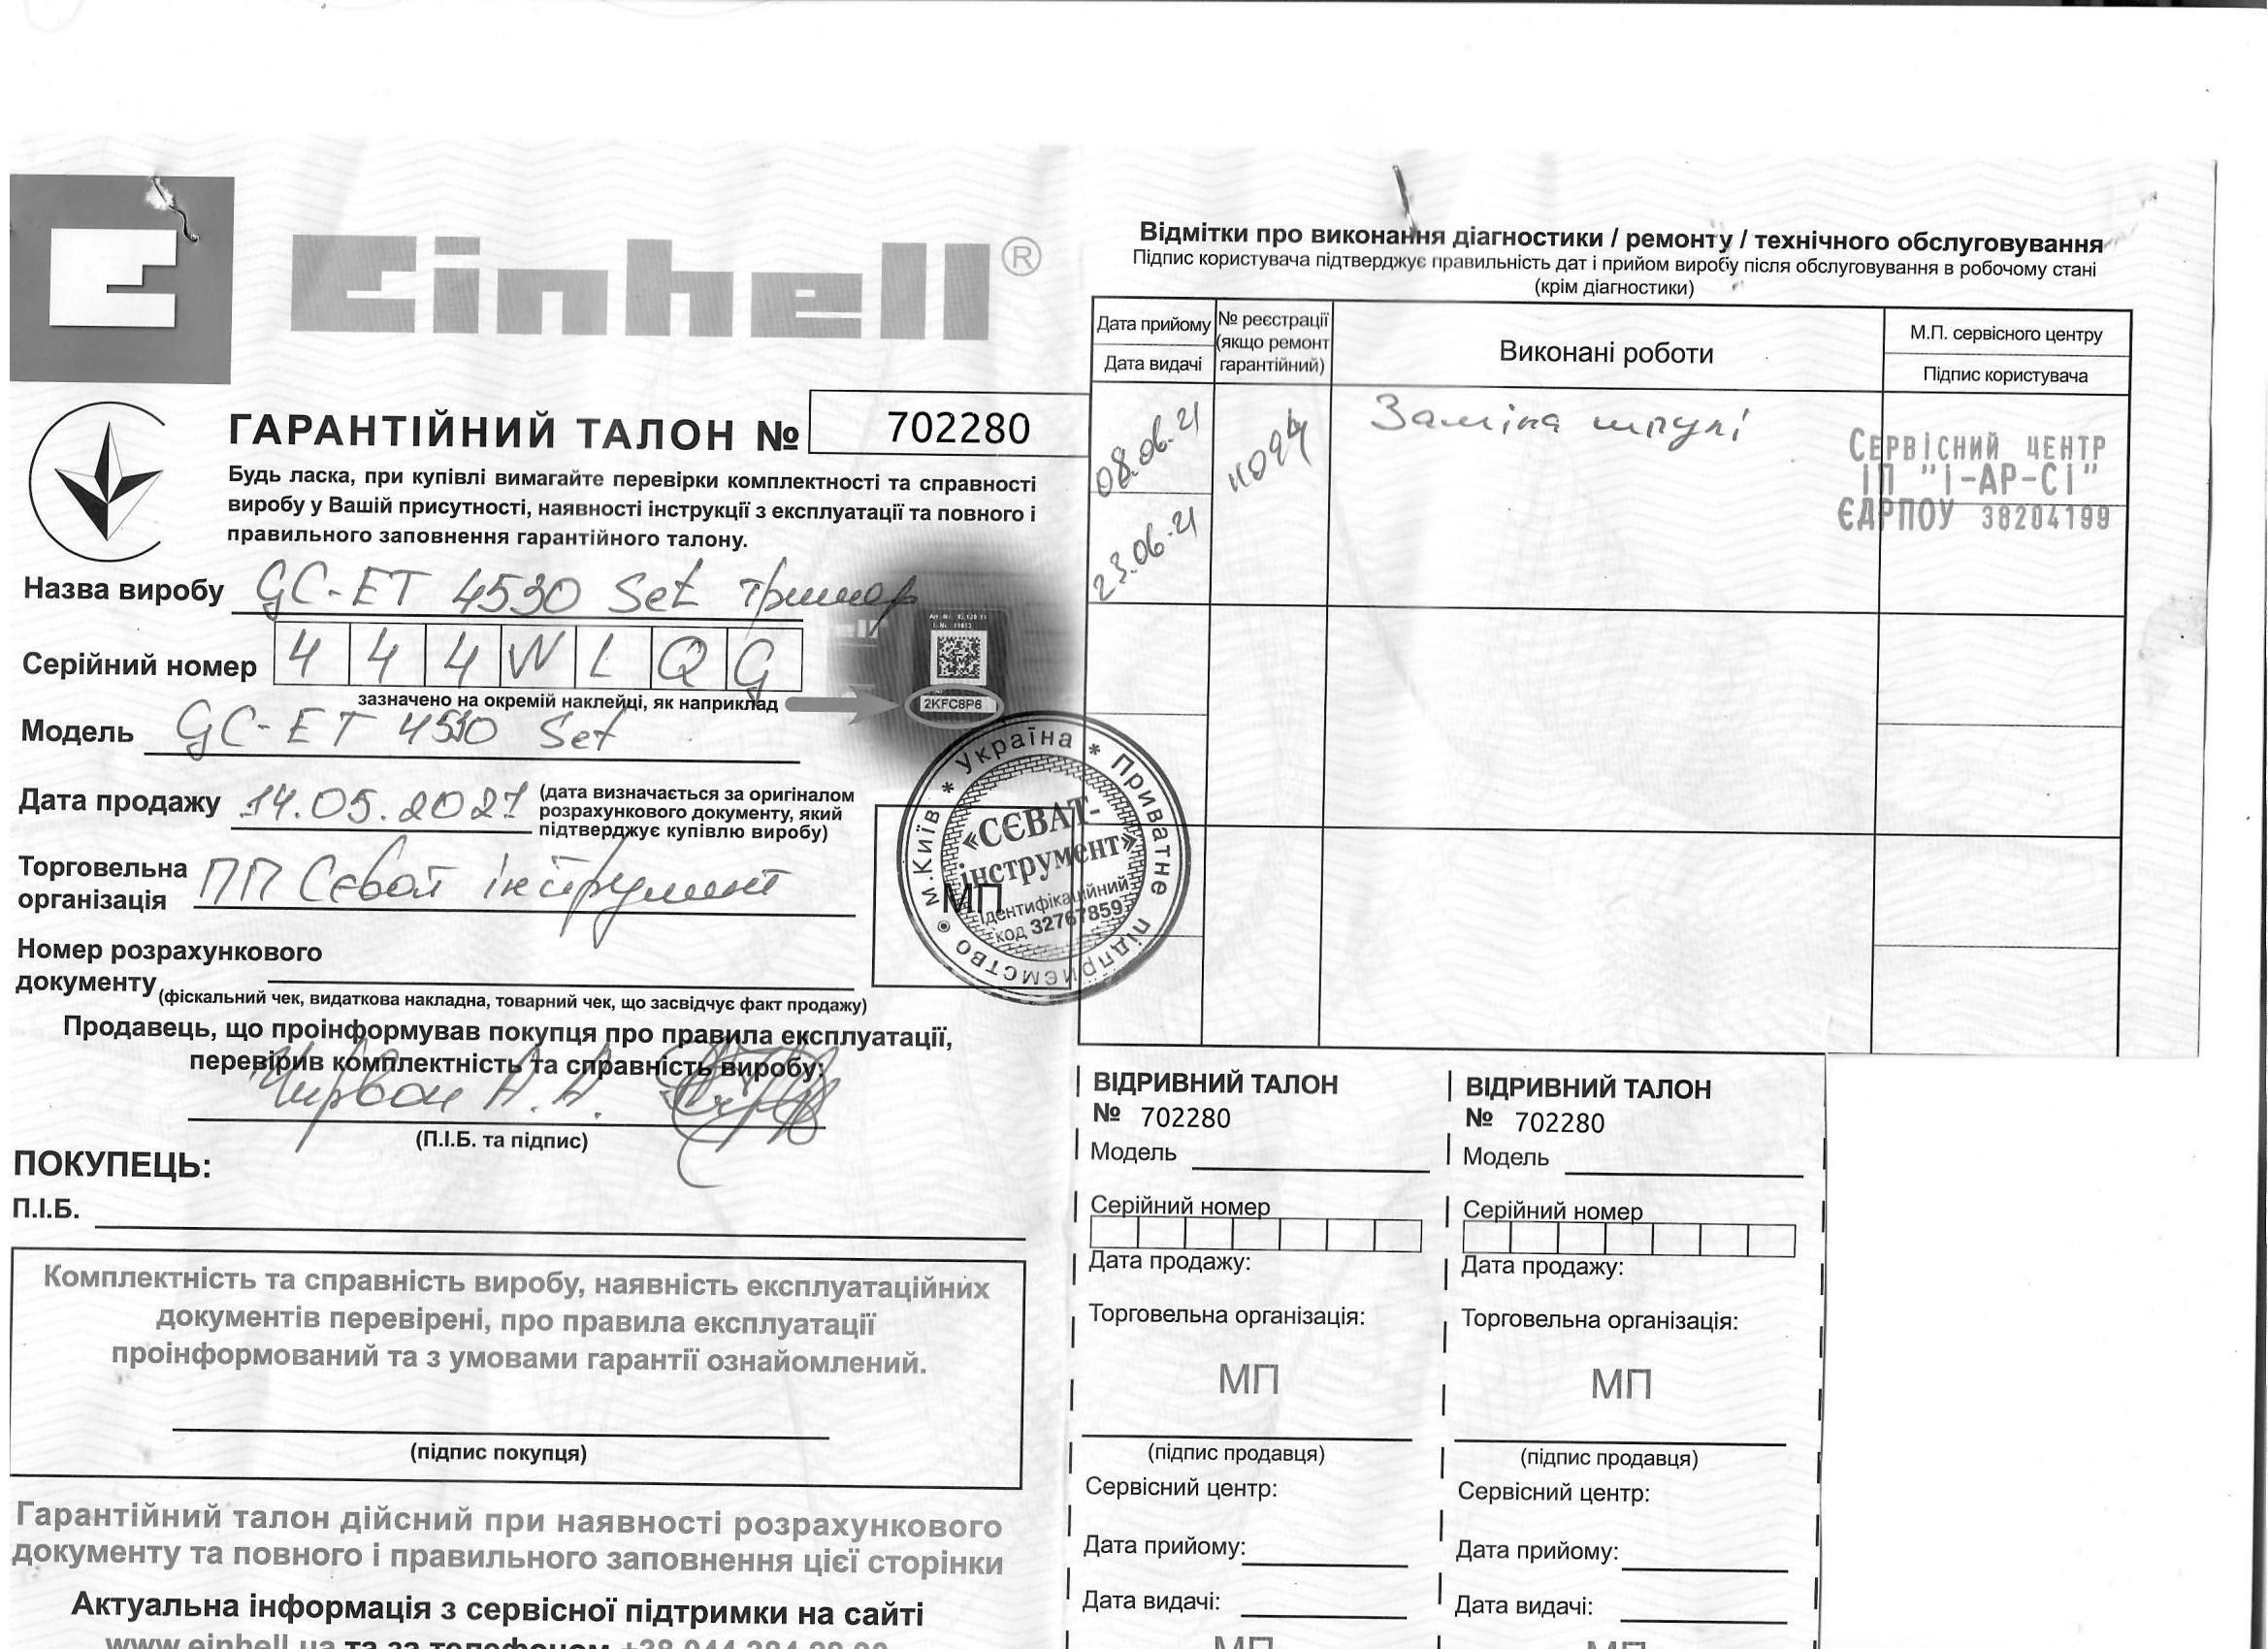 Einhell®
ГАРАНТІЙНИЙ ТАЛОН № 702280
Будь ласка, при купівлі вимагайте перевірки комплектності та справності
виробу у Вашій присутності, наявності інструкції з експлуатації та повного і
правильного заповнення гарантійного талону.
Назва виробу GC-ET 4530 Set Тример
Серійний номер 4 4 4 W L Q G
зазначено на окремій наклейці, як наприклад
2KFC8P6
Модель GC-ET 4530 Set
Дата продажу 14.05.2021 (дата визначається за оригіналом
розрахункового документу, який
підтверджує купівлю виробу)
Торговельна
організація ПП Сєват інструмент
МП
* Україна * Приватне підприємство * м.Київ
«СЄВАТ-
інструмент»
Ідентифікаційний
код 32767859
Номер розрахункового
документу
(фіскальний чек, видаткова накладна, товарний чек, що засвідчує факт продажу)
Продавець, що проінформував покупця про правила експлуатації,
перевірив комплектність та справність виробу:
А.А.
(П.І.Б. та підпис)
ПОКУПЕЦЬ:
П.І.Б.
Комплектність та справність виробу, наявність експлуатаційних
документів перевірені, про правила експлуатації
проінформований та з умовами гарантії ознайомлений.
(підпис покупця)
Гарантійний талон дійсний при наявності розрахункового
документу та повного і правильного заповнення цієї сторінки
Актуальна інформація з сервісної підтримки на сайті
www.einhell.ua та за телефоном
Відмітки про виконання діагностики / ремонту / технічного обслуговування
Підпис користувача підтверджує правильність дат і прийом виробу після обслуговування в робочому стані
(крім діагностики)
Дата прийому
Дата видачі
№ реєстрації
(якщо ремонт
гарантійний)
Виконані роботи
М.П. сервісного центру
Підпис користувача
08.06.21
23.06.21
Заміна шпулі
СЕРВІСНИЙ ЦЕНТР
ІП "І-АР-СІ"
ЄДРПОУ 38204199
ВІДРИВНИЙ ТАЛОН
№ 702280
Модель
Серійний номер
Дата продажу:
Торговельна організація:
МП
(підпис продавця)
Сервісний центр:
Дата прийому:
Дата видачі:
МП
ВІДРИВНИЙ ТАЛОН
№ 702280
Модель
Серійний номер
Дата продажу:
Торговельна організація:
МП
(підпис продавця)
Сервісний центр:
Дата прийому:
Дата видачі:
МП